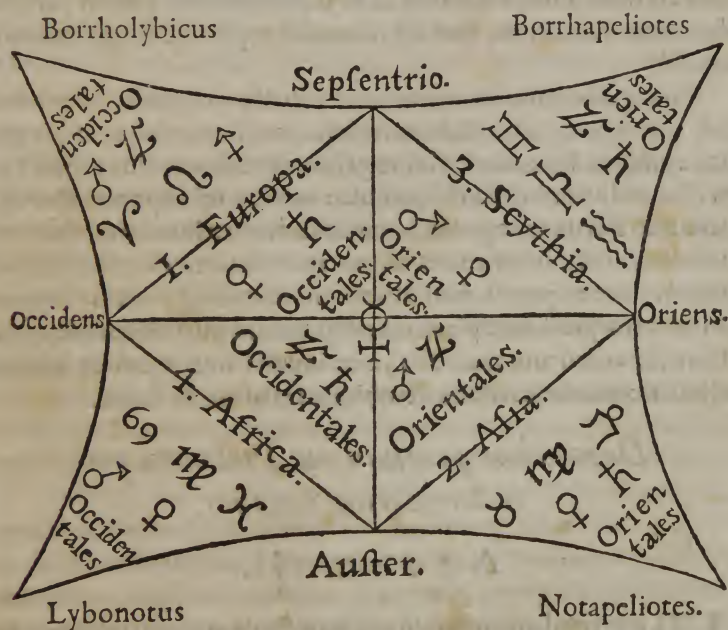 Borrholybicus
Borrhapeliotes
Sepſentrio.
Occiden
tales
Orien
tales
1. Europa.
3. Scythia.
Occiden.
tales.
Orien
tales.
Occidens
Oriens.
Occidentales.
Orientales.
4. Africa.
2. Aſia.
Occiden
tales
Orien
tales
Auſter.
Lybonotus
Notapeliotes.